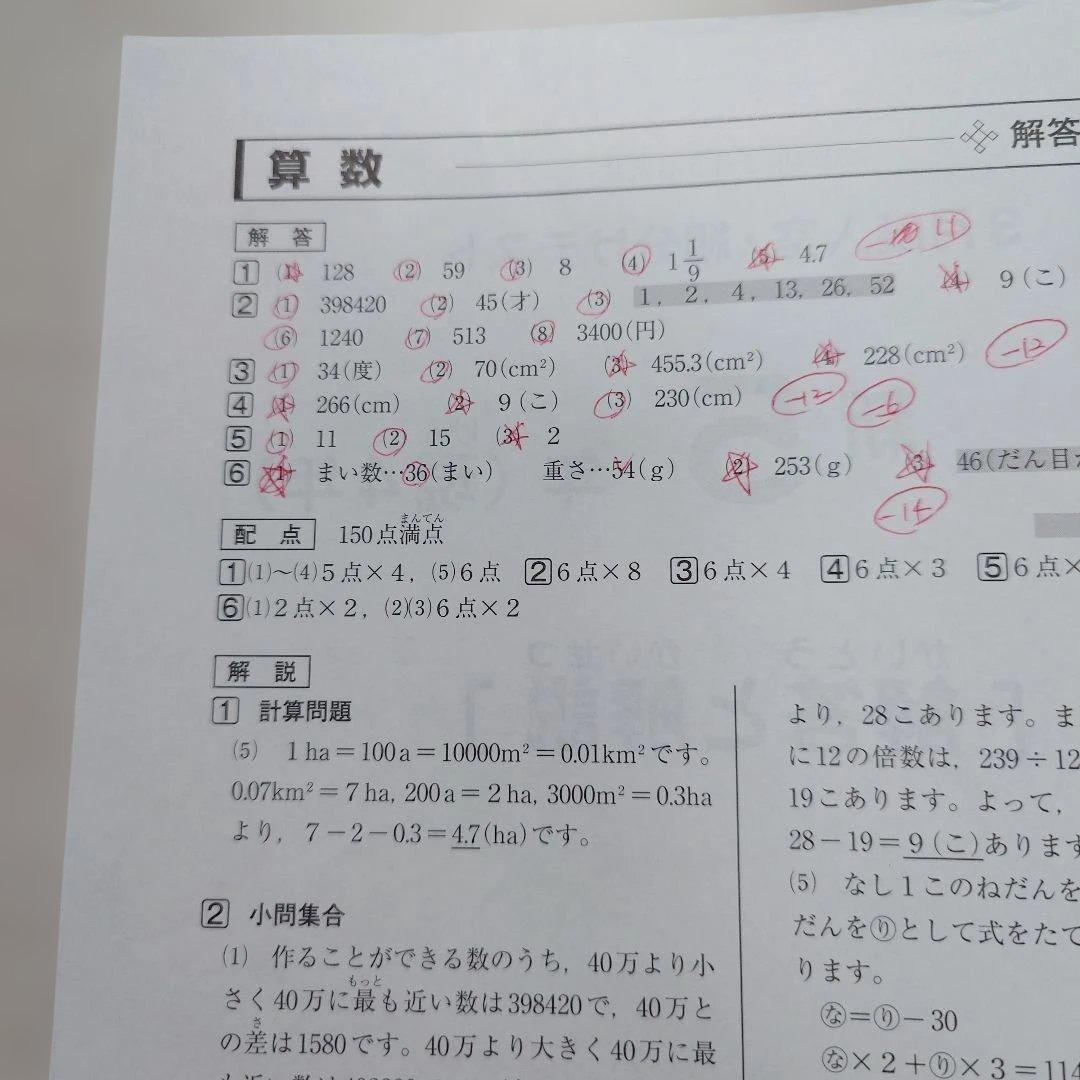 算 数
解答
解 答
1 (1) 128 (2) 59 (3) 8 (4) 1 1/9 (5) 4.7 11
2 (1) 398420 (2) 45(才) (3) 1, 2, 4, 13, 26, 52 (4) 9(こ)
(6) 1240 (7) 513 (8) 3400(円)
3 (1) 34(度) (2) 70(cm²) (3) 455.3(cm²) (4) 228(cm²) -12
4 (1) 266(cm) (2) 9(こ) (3) 230(cm) -12 -6
5 (1) 11 (2) 15 (3) 2
6 (1) まい数…36(まい) 重さ…54(g) (2) 253(g) (3) 46(だん目
-14
配 点 150点満点
まんてん
1(1)~(4)5点×4, (5)6点 26点×8 36点×4 46点×3 56点×
6(1)2点×2, (2)(3)6点×2
解 説
1 計算問題
(5) 1ha=100a=10000m²=0.01km²です。
0.07km²=7ha, 200a=2ha, 3000m²=0.3ha
より, 7-2-0.3=4.7(ha)です。
2 小問集合
(1) 作ることができる数のうち, 40万より小
もっと
さく40万に最も近い数は398420で, 40万と
さ
の差は1580です。40万より大きく40万に最
より, 28こあります。ま
に12の倍数は, 239÷12
19こあります。よって,
28-19=9(こ)あります
(5) なし1このねだんを
だんを㋷として式をたて
ります。
㋤=㋷-30
㋤×2+㋷×3=114